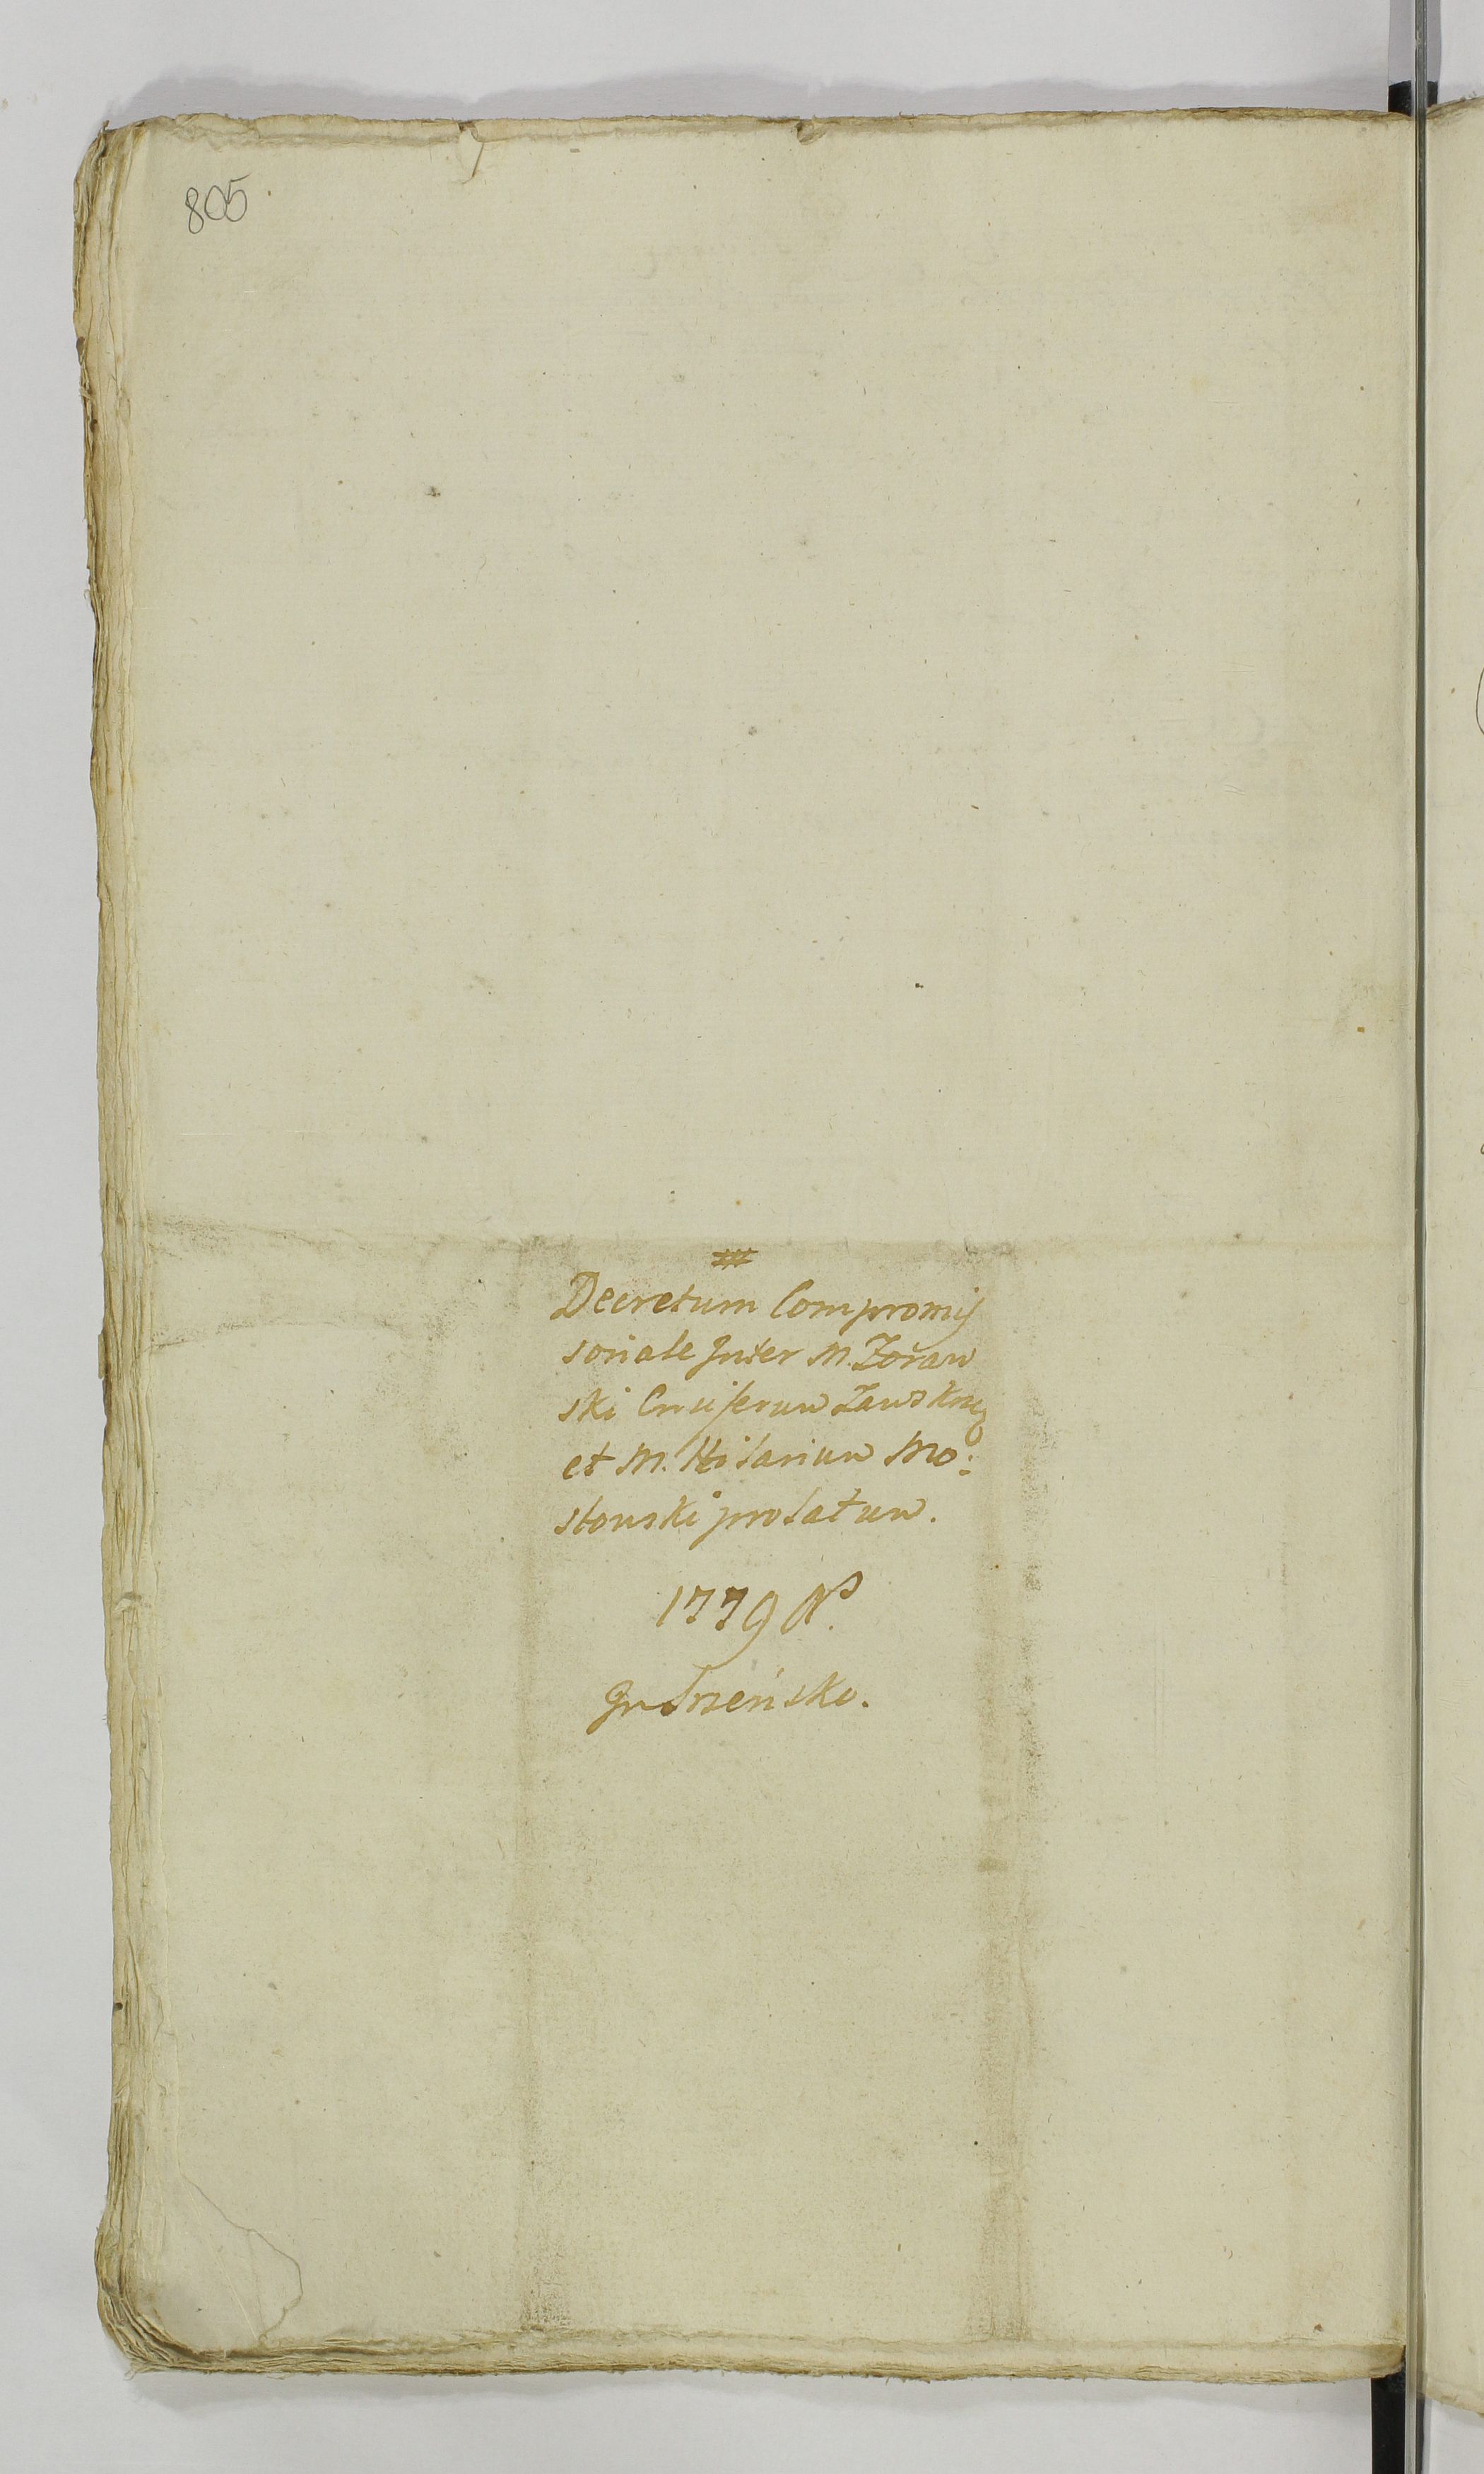 805
Decretum Compromis
soriale Inter M. Zoraw
ski Cruiserum Zawskrz
et M. Hilarium Mo:
stowski prolatum.
1779 No.